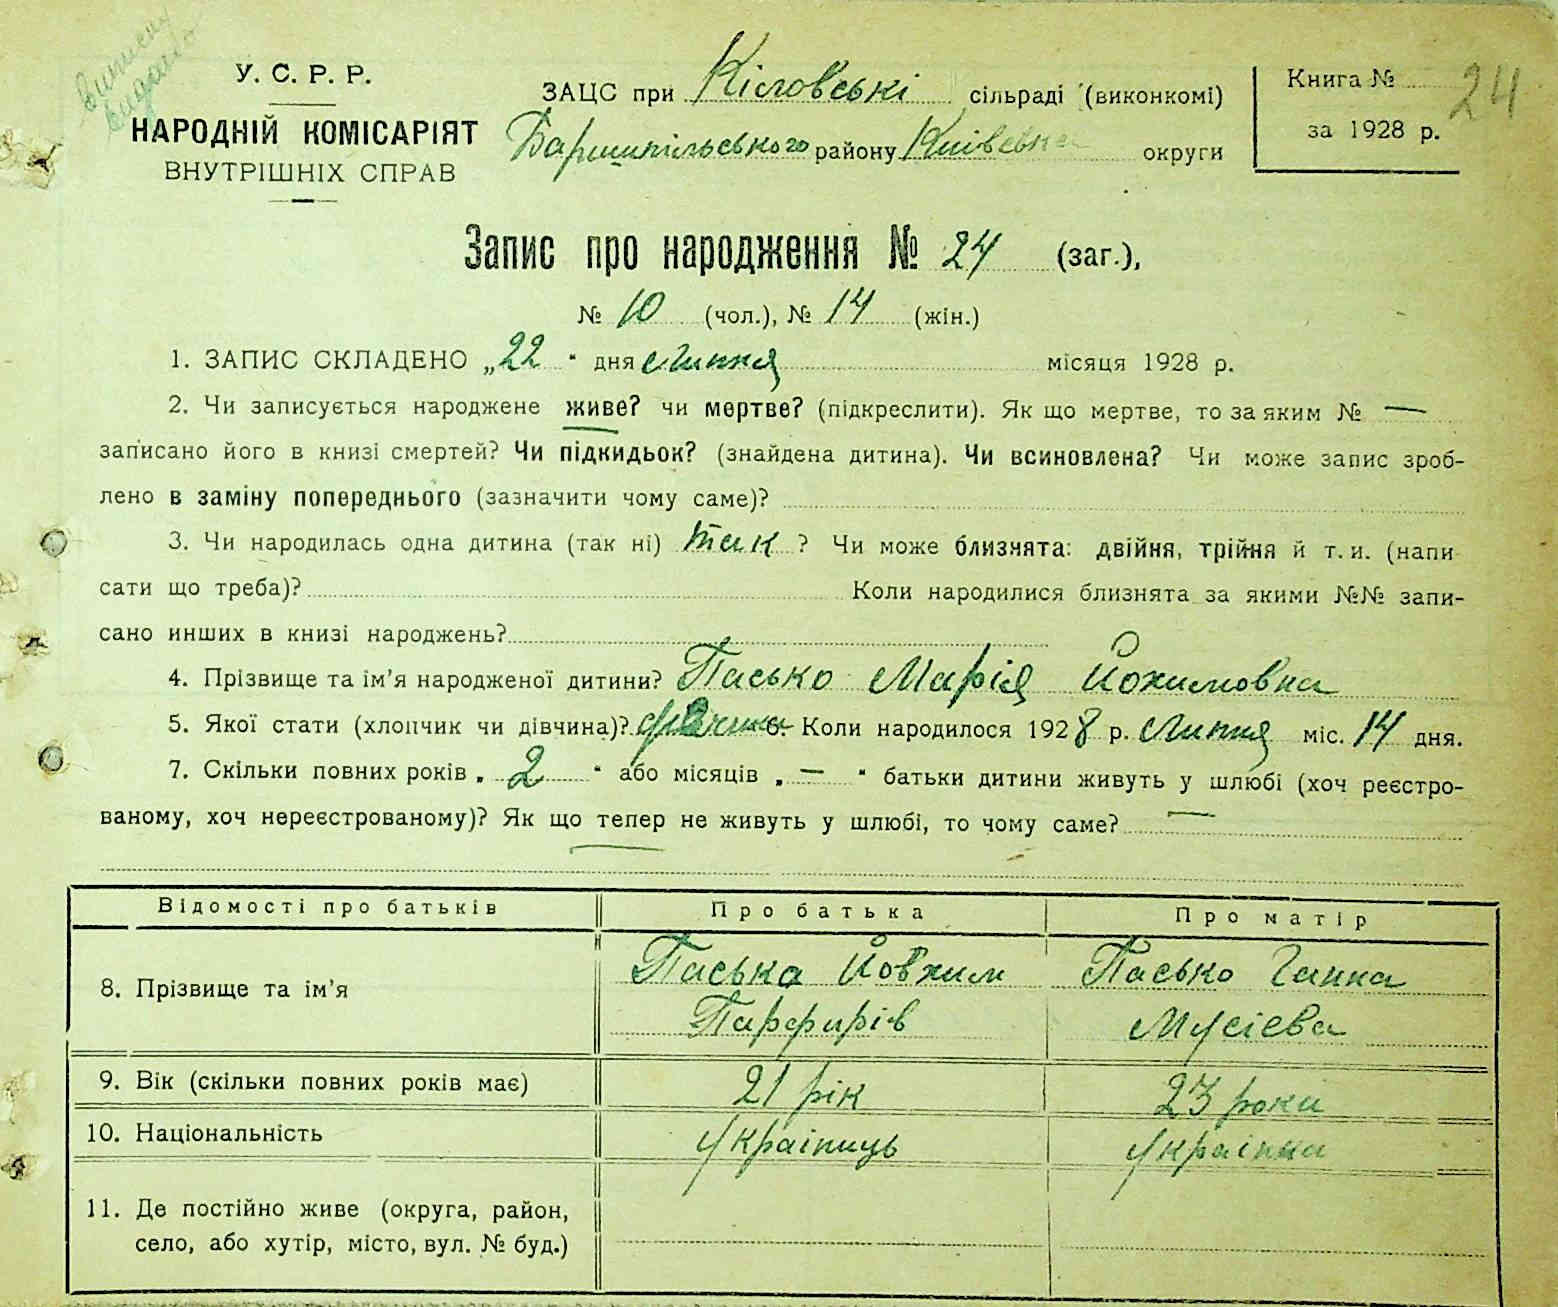 виписку
видано
У. С. Р. Р.
НАРОДНІЙ КОМІСАРІЯТ
ВНУТРІШНІХ СПРАВ
ЗАЦС при Кісловські сільраді (виконкомі)
Баришпільського району Київської округи
Книга № 24
за 1928 р.
Запис про народження № 24 (заг.),
№ 10 (чол.), № 14 (жін.)
1. ЗАПИС СКЛАДЕНО „22“ дня липня місяця 1928 р.
2. Чи записується народжене живе? чи мертве? (підкреслити). Як що мертве, то за яким № —
записано його в книзі смертей? Чи підкидьок? (знайдена дитина). Чи всиновлена? Чи може запис зроб-
лено в заміну попереднього (зазначити чому саме)?
3. Чи народилась одна дитина (так ні) так ? Чи може близнята: двійня, трійня й т. и. (напи
сати що треба)? Коли народилися близнята за якими №№ запи-
сано инших в книзі народжень?
4. Прізвище та ім’я народженої дитини? Пасько Марія Йохимовна
5. Якої стати (хлопчик чи дівчина)? дівчина 6. Коли народилося 1928 р. липня міс. 14 дня.
7. Скільки повних років „ 2 “ або місяців „ — “ батьки дитини живуть у шлюбі (хоч реєстро-
ваному, хоч нереєстрованому)? Як що тепер не живуть у шлюбі, то чому саме? —
Відомості про батьків Про батька Про матір
8. Прізвище та ім’я Паська Йовхим Пасько Ганна
Парфирів Мусієва
9. Вік (скільки повних років має) 21 рік 23 роки
10. Національність Українць Українка
11. Де постійно живе (округа, район,
село, або хутір, місто, вул. № буд.)